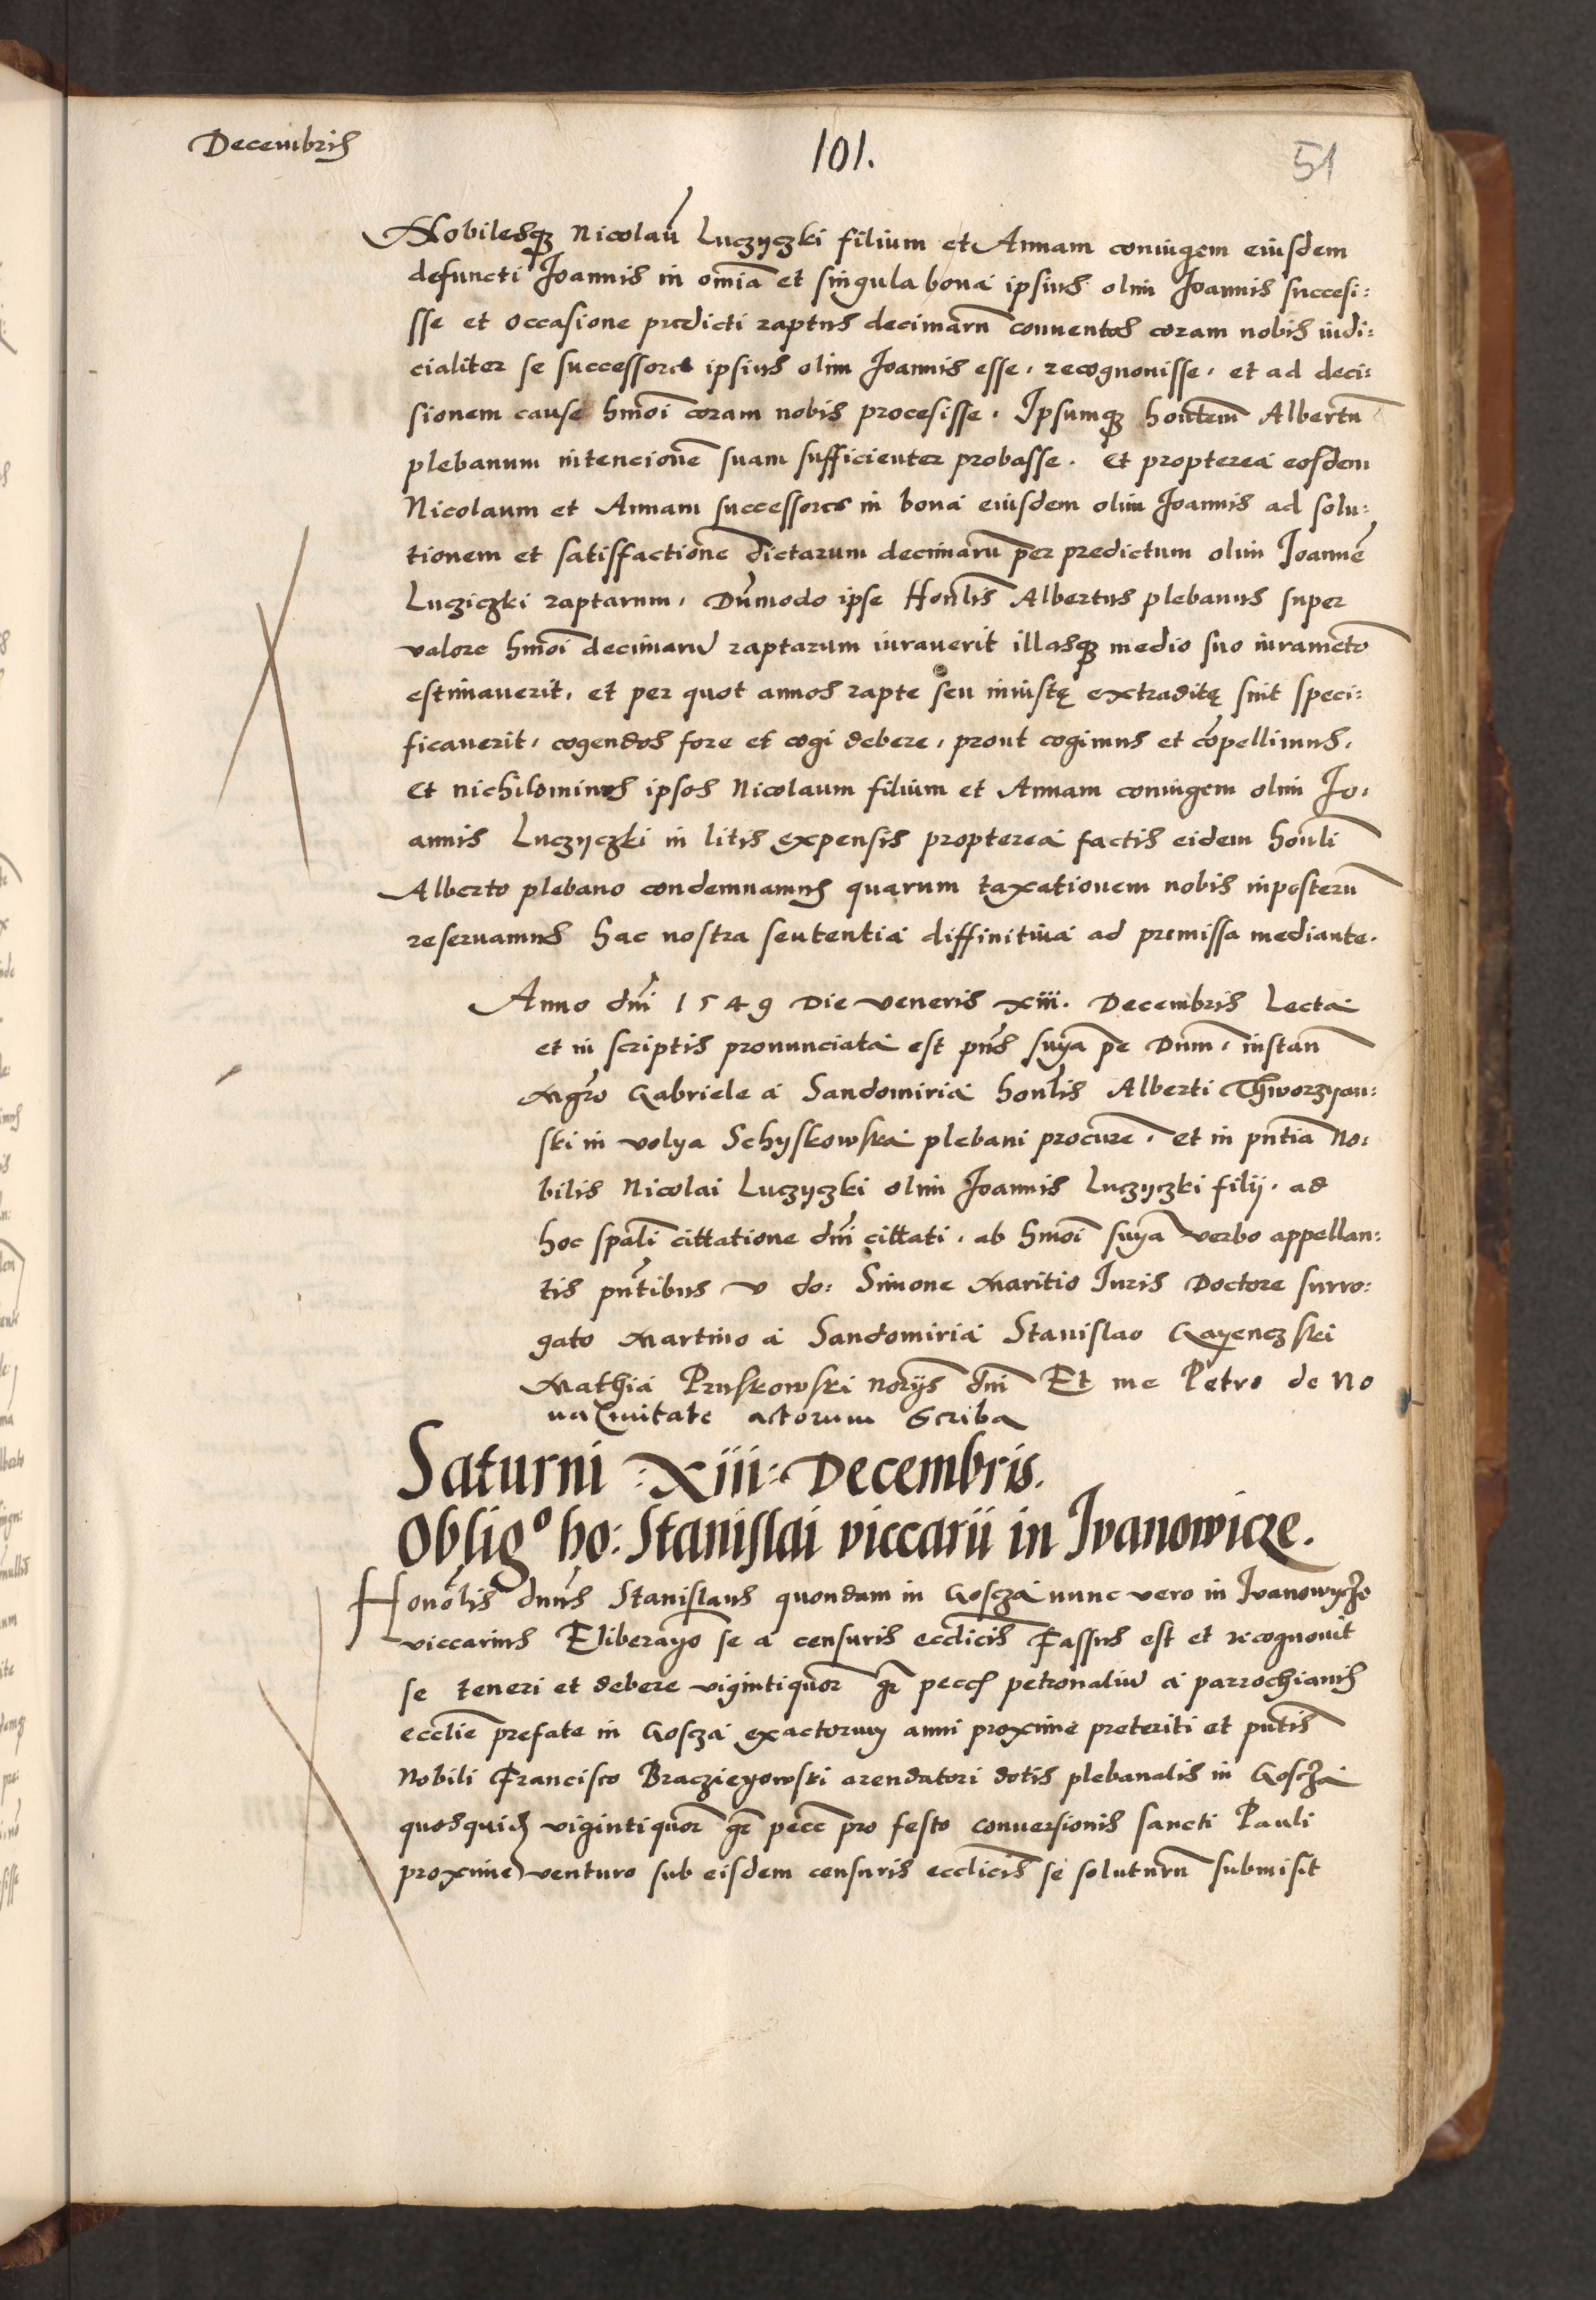 Decembris
101.
51
Nobilesq3 Nicolaū Luczyczki filium et Annam coniugem eiusdem
defuncti Joannis in om̄ia et singula bona ipsius olim Joannis succesi:
sse et occasione predicti raptus decimarū conuentos coram nobis iudi:
cialiter se successores ipsius olim Joannis esse, recognouisse, et ad deci:
sionem cause hmōi coram nobis procesisse. Ipsumq3 honlēm Albertū
plebanum intencionē suam sufficienter probasse. Et propterea eosdem
Nicolaum et Annam successores in bona eiusdem olim Joannis ad solu:
tionem et satisfactionē dictarum decimarū per predictum olim Joannē
Lucziczki raptarum, Dūmodo ipse Honlīs Albertus plebanus super
valore hmōi decimarū raptarum iurauerit illasq3 medio suo iuramēto
estimauerit, et per quot annos rapte seu iniustę extraditę sint speci:
ficauerit, cogendos fore et cogi debere, prout cogimus et cōpellimus,
Et nichilominus ipsos Nicolaum filium et Annam coniugem olim Jo,
annis Luczyczki in litis expensis propterea factis eidem honlī
Alberto plebano condemnamus quarum taxationem nobis inposterū
reseruamus hac nostra sententia diffinitiua ad premissa mediante.
Anno dnī 1549 Die veneris xiii. Decembris Lecta
et in scriptis pronunciata est pn̄s sn̄ya per Dn̄um, instan̄
Mgrō Gabriele a Sandomiria honlīs Alberti Thworzyan:
ski in volya Schyskowska plebani procure, et in pn̄tia No:
bilis Nicolai Luczyczki olim Joannis Luczyczki filij, ad
hoc spalī cittatione dnī cittati, ab hmōi sn̄ya verbo appellan:
tis pn̄tibus v do: Simone Maritio Iuris Doctore surro:
gato Martino a Sandomiria Stanislao Gayenczski
Mathia Pruskowski norijs dnī Et me Petro de No
ua Ciuitate actorum Scriba
Saturni :Xiii: Decembris.
Oblig° ho: Stanislai viccarii in Ivanowicze.
Honōlis dnūs Stanislaus quondam in Goscza nunc vero in Ivanowycze
viccarius Eliberayo se a censuris ecclicīs Fassus est et recognouit
se teneri et debere vigintiquor gr pecc petronaliū a parrochianis
ecclīe prefate in Goscza exactorum anni proxime preteriti et pn̄tis
Nobili Francisco Braczieyowski arendatori dotis plebanalis in Goscza
quosquid vigintiquor gr pecc pro festo conuersionis sancti Pauli
proxime venturo sub eisdem censuris ecclicīs se soluturū submisit